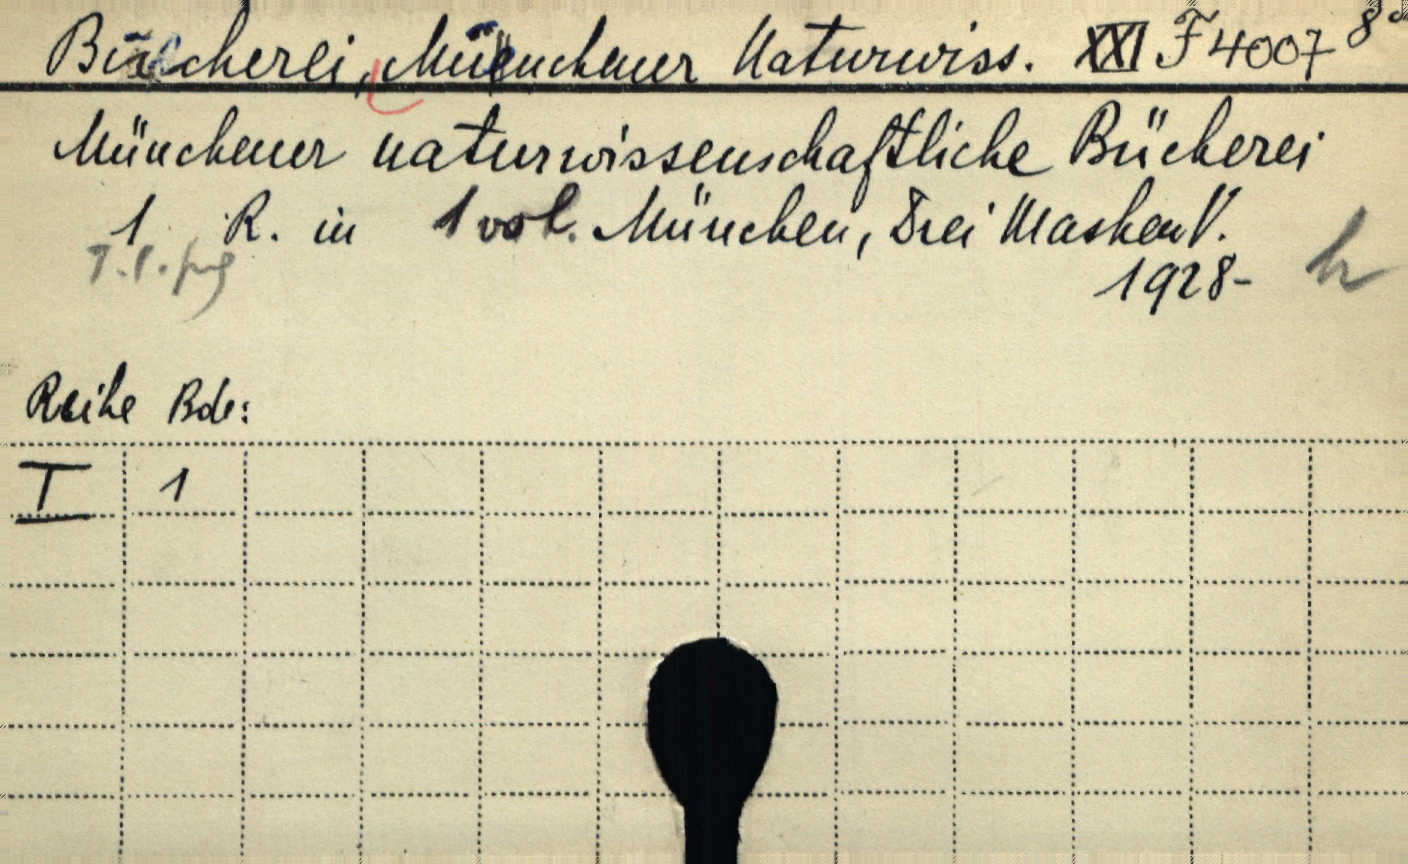 Bücherei, Münchener Naturwiss. XXI F 4007 8°
Münchener naturwissenschaftliche Bücherei
1 R. in 1 vol. München, Drei Masken V.
1928-
h
Reihe Bde:
I 1